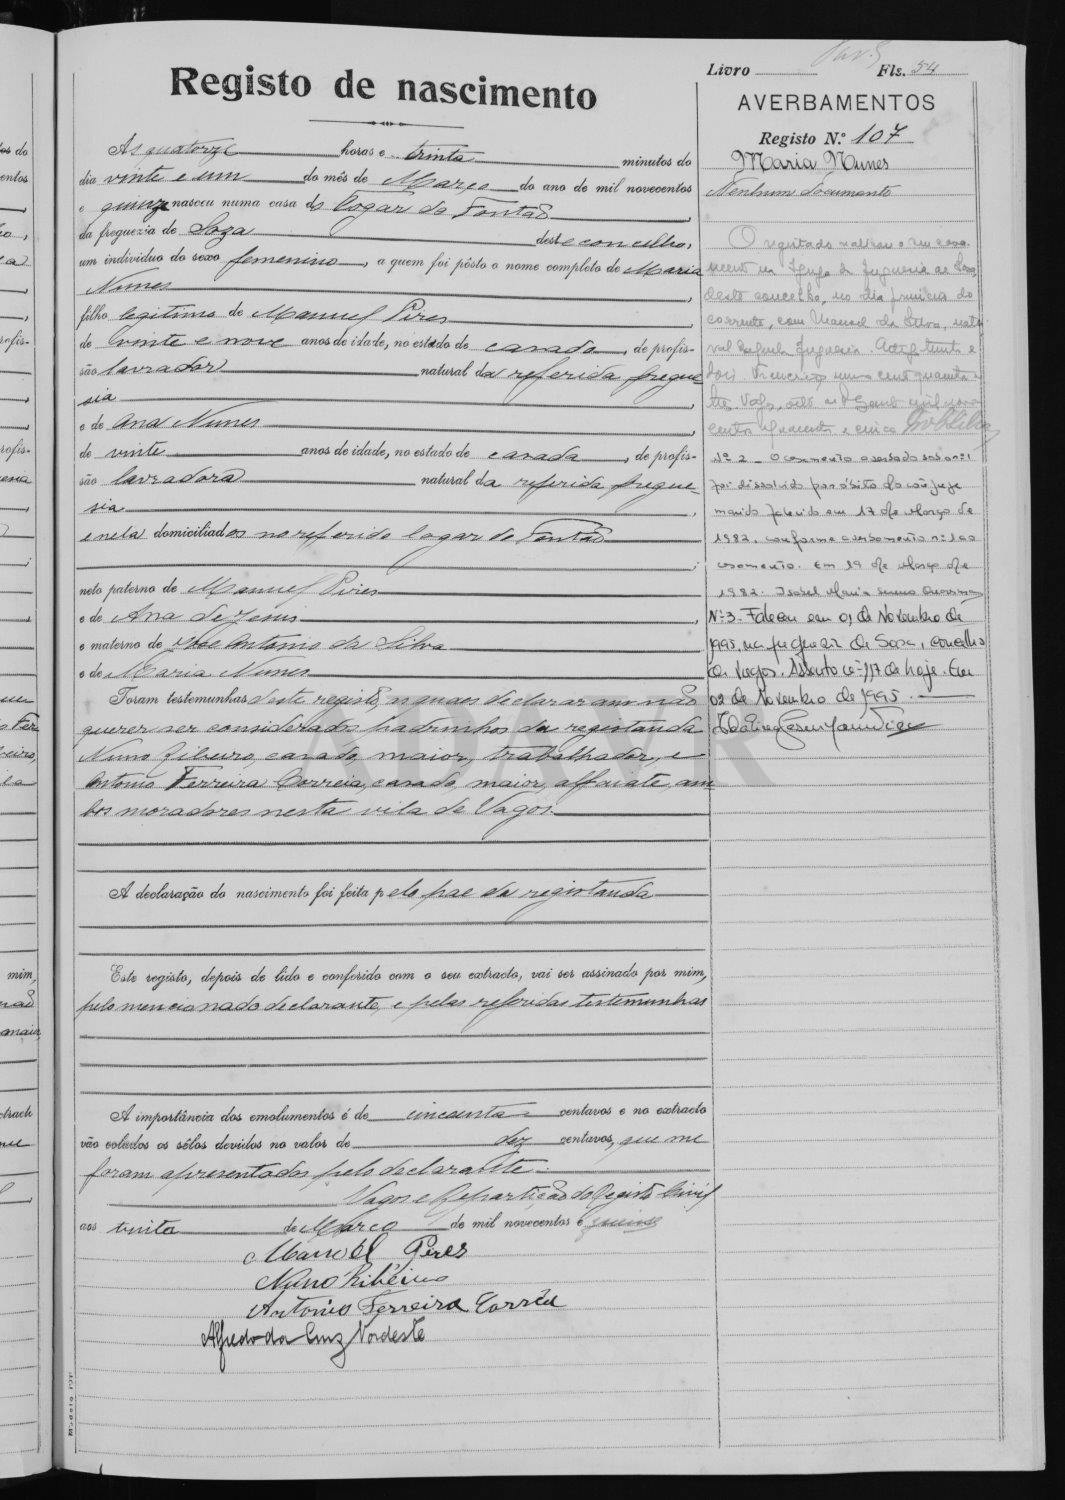 Registo de nascimento
Livro Fls. 54
AVERBAMENTOS
Registo N.º 107
Maria Nunes
Nenhum documento
Ás quatorze horas e trinta minutos do
dia vinte e um do mês de Março do ano de mil novecentos
e quinze nasceu numa casa do logar de Fontão,
da freguezia de Soza deste concelho,
um individuo do sexo femenino, a quem foi pôsto o nome completo de Maria
Nunes,
filho legitimo de Manuel Pires,
de vinte e nove anos de idade, no estado de casado, de profis-
são lavrador natural da referida fregue
sia,
e de Ana Nunes,
de vinte anos de idade, no estado de casada, de profis-
são lavradora natural da referida fregue-
sia,
e nela domiciliados no referido logar de Fontão
;
neto paterno de Manuel Pires
e de Ana de Jesus
e materno de José Antonio da Silva
e de Maria Nunes
Foram testemunhas deste registo, as quaes declararam não
querer ser considerados padrinhos da registanda
Nuno Ribeiro, casado, maior, trabalhador, e
Antonio Ferreira Correia, casado, maior, alfaiate, am
bos moradores nesta vila de Vagos.
A declaração do nascimento foi feita pelo pae da registanda
Este registo, depois de lido e conferido com o seu extracto, vai ser assinado por mim,
pelo mencionado declarante, e pelas referidas testemunhas
A importância dos emolumentos é de cincoenta centavos e no extracto
vão colados os sêlos devidos no valor de dez centavos, que me
foram apresentados pelo declarante.
Vagos e Repartição do Registo Civil
aos trinta de Março de mil novecentos e quinze
Manoel Pires
Nuno Ribeiro
Antonio Ferreira Corrêa
Alfredo da Cruz Nordeste
O registado
deste concelho, no dia primeiro do
corrente, com Manuel da Silva, natu
ral daquela freguesia.
Nº 2 - O casamento averbado sob o nº 1
foi dissolvido por óbito do cônjuge
marido falecido em 17 de Março de
1982, conforme averbamento nº 1 ao
casamento. Em 19 de Março de
1982. Isabel Maria
Nº 3. Faleceu em 01 de Novembro de
1995, na freguesia de Soza, concelho
de Vagos. Assento nº 117 de hoje. Em
02 de Novembro de 1995.
ADAVR